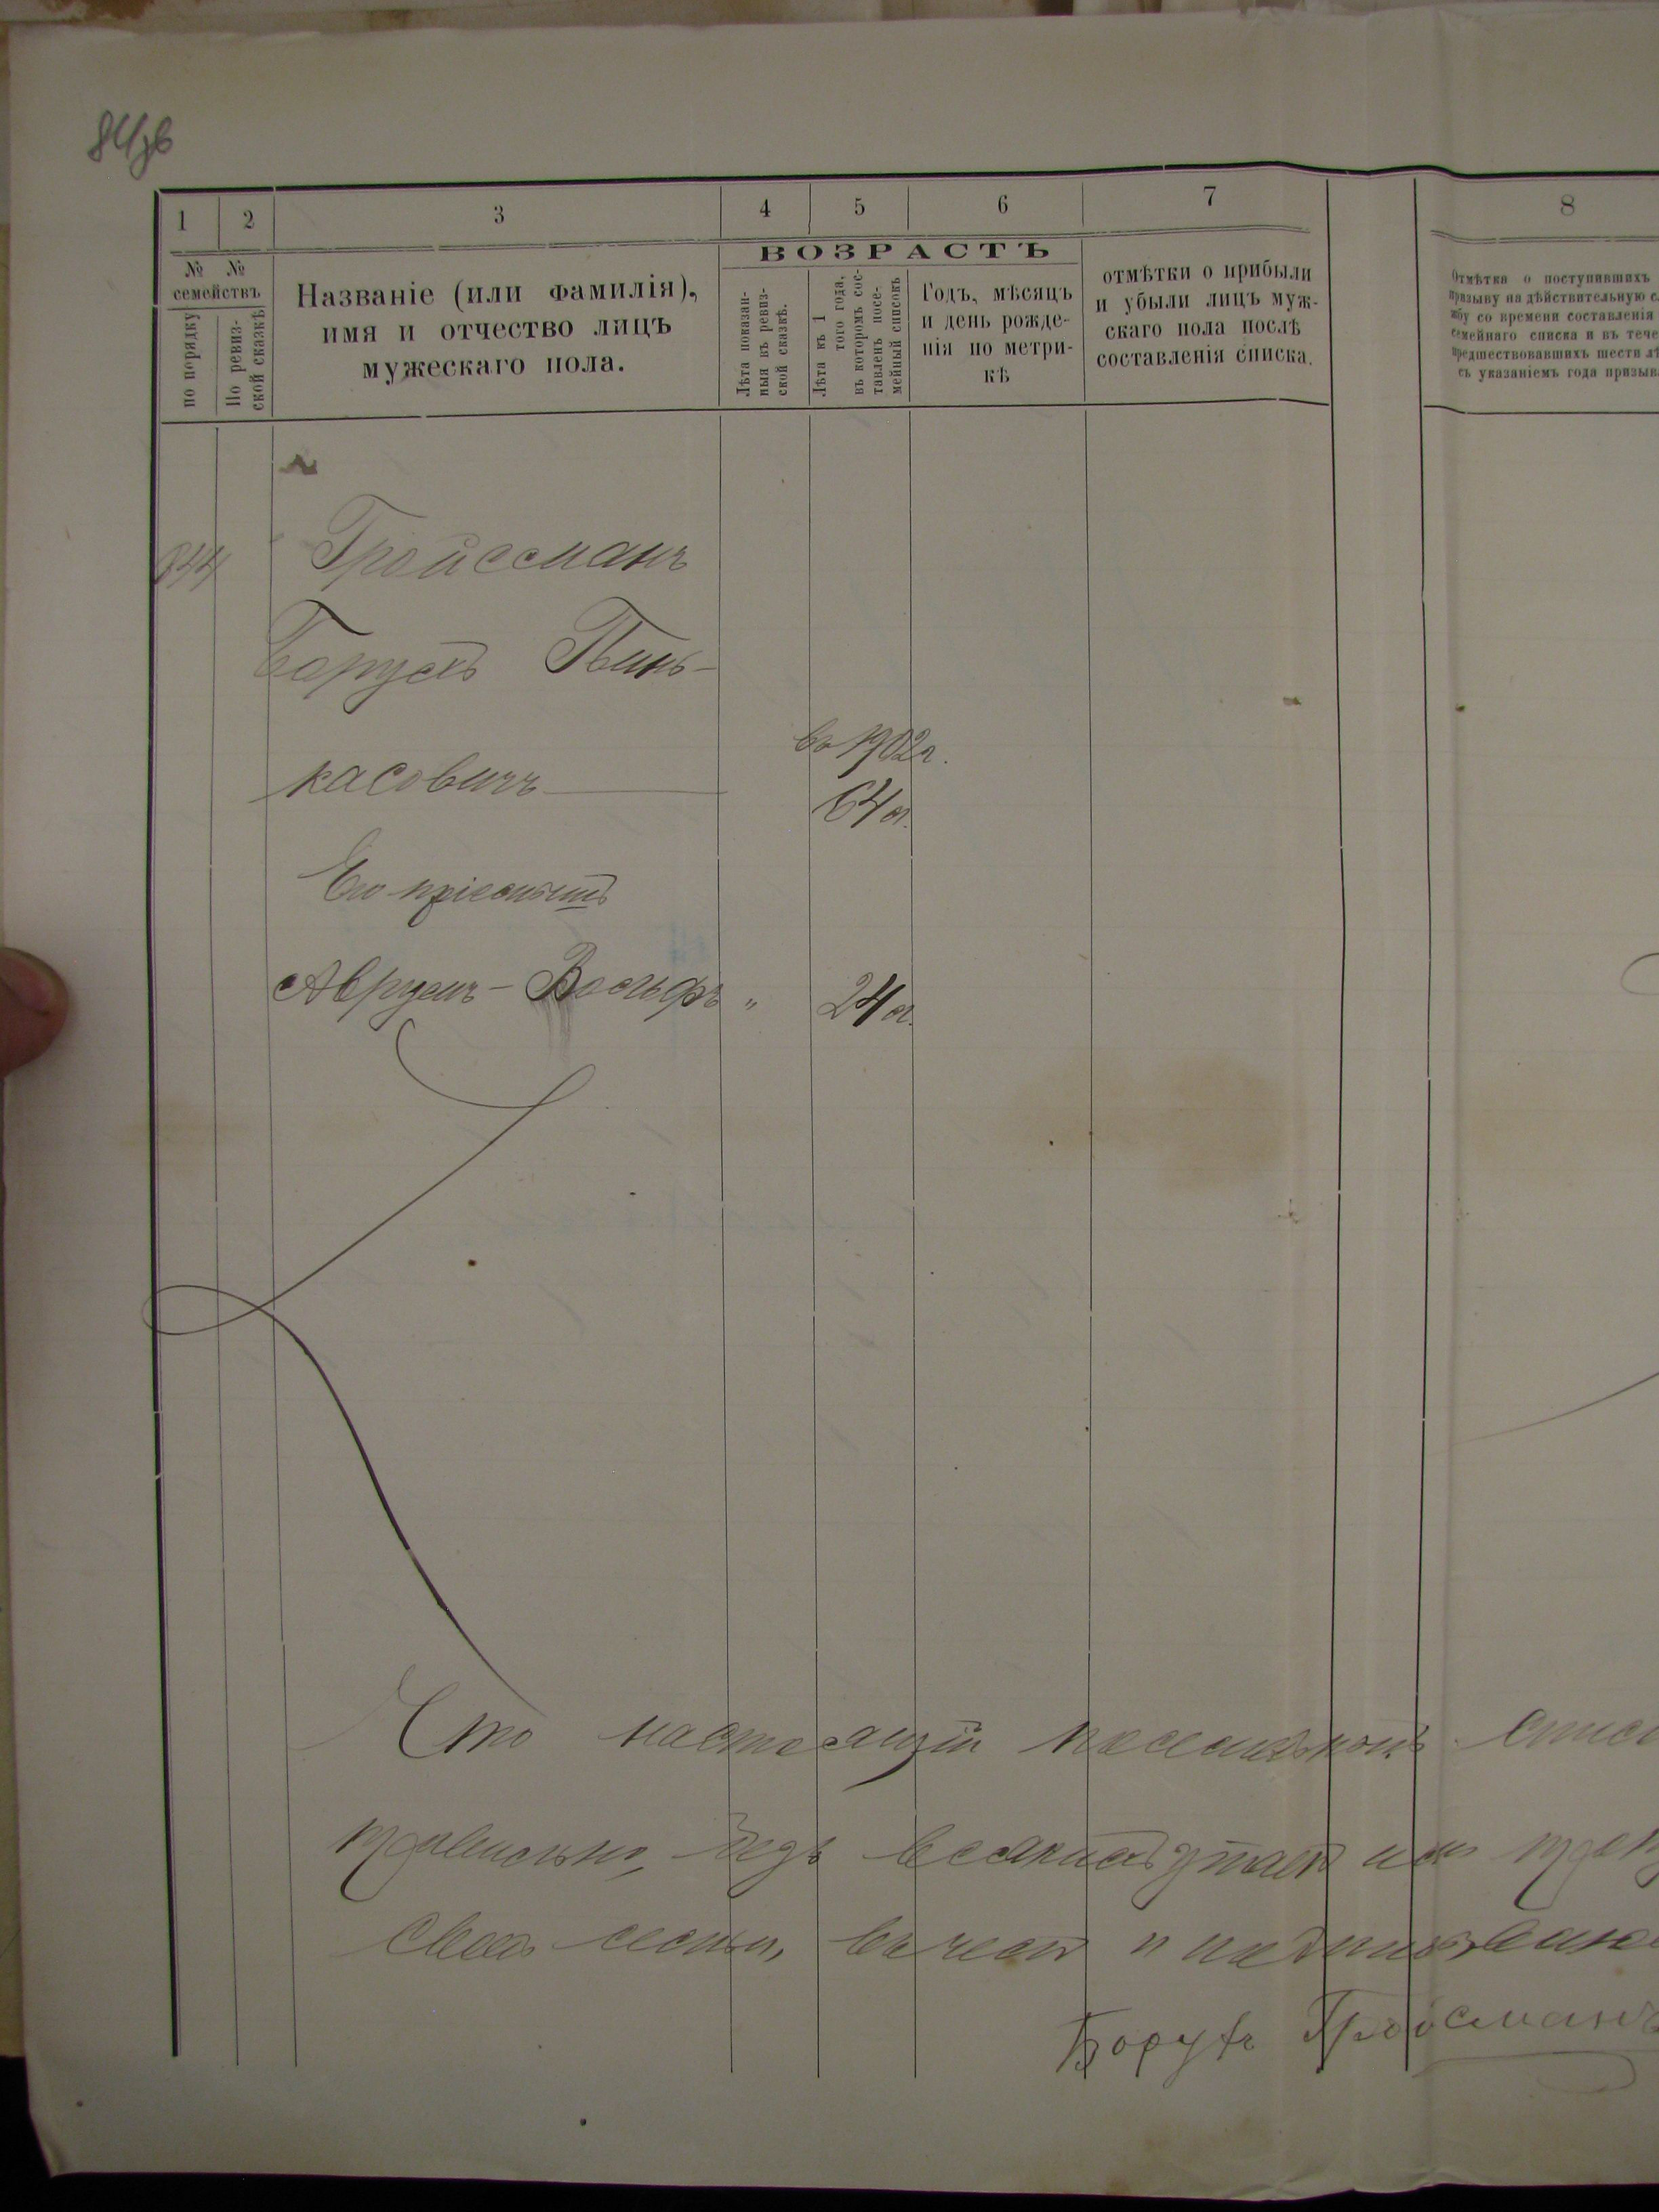 1 2 3 4 5 6 7 8
ВОЗРАСТЪ
№ № семействъ
по порядку
По ревиз-
ской сказкѣ
Названіе (или фамилія),
имя и отчество лицъ
мужескаго пола.
Лѣта показан-
ныя въ ревиз-
ской сказкѣ.
Лѣта къ 1
того года,
въ которомъ сос-
тавленъ посе-
мейный списокъ
Годъ, мѣсяцъ
и день рожде-
нія по метри-
кѣ
отмѣтки о прибыли
и убыли лицъ муж-
скаго пола послѣ
составленія списка.
Отмѣтка о поступившихъ
призыву на дѣйствительную
жбу со времени составленія
семейнаго списка и въ тече
предшествовавшихъ шести лѣ
съ указаніемъ года призыв
Гройссманъ
Борухъ Пинь-
касовичъ
въ 1902г.
64 л.
Его пріемышъ
Аврумъ-Вольфъ " 24 л.
Что настоящій посемейный
правильно,
своей семьи, въ чемъ и подписываюсь
Борухъ Гройсманъ